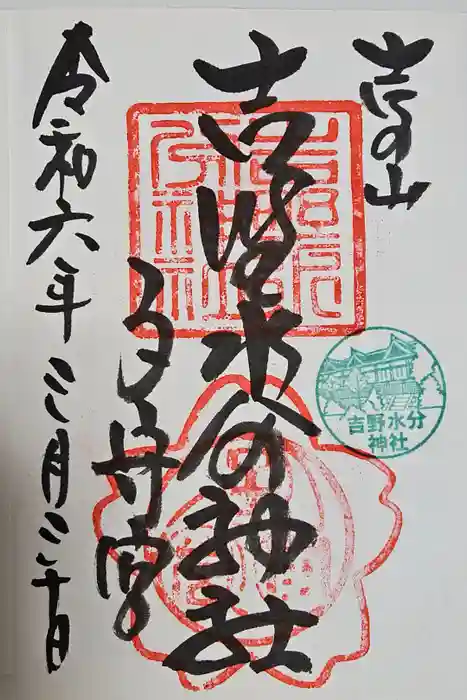 吉の山
吉野水分神社
子守宮
令和六年三月二十日
吉野水分
神社